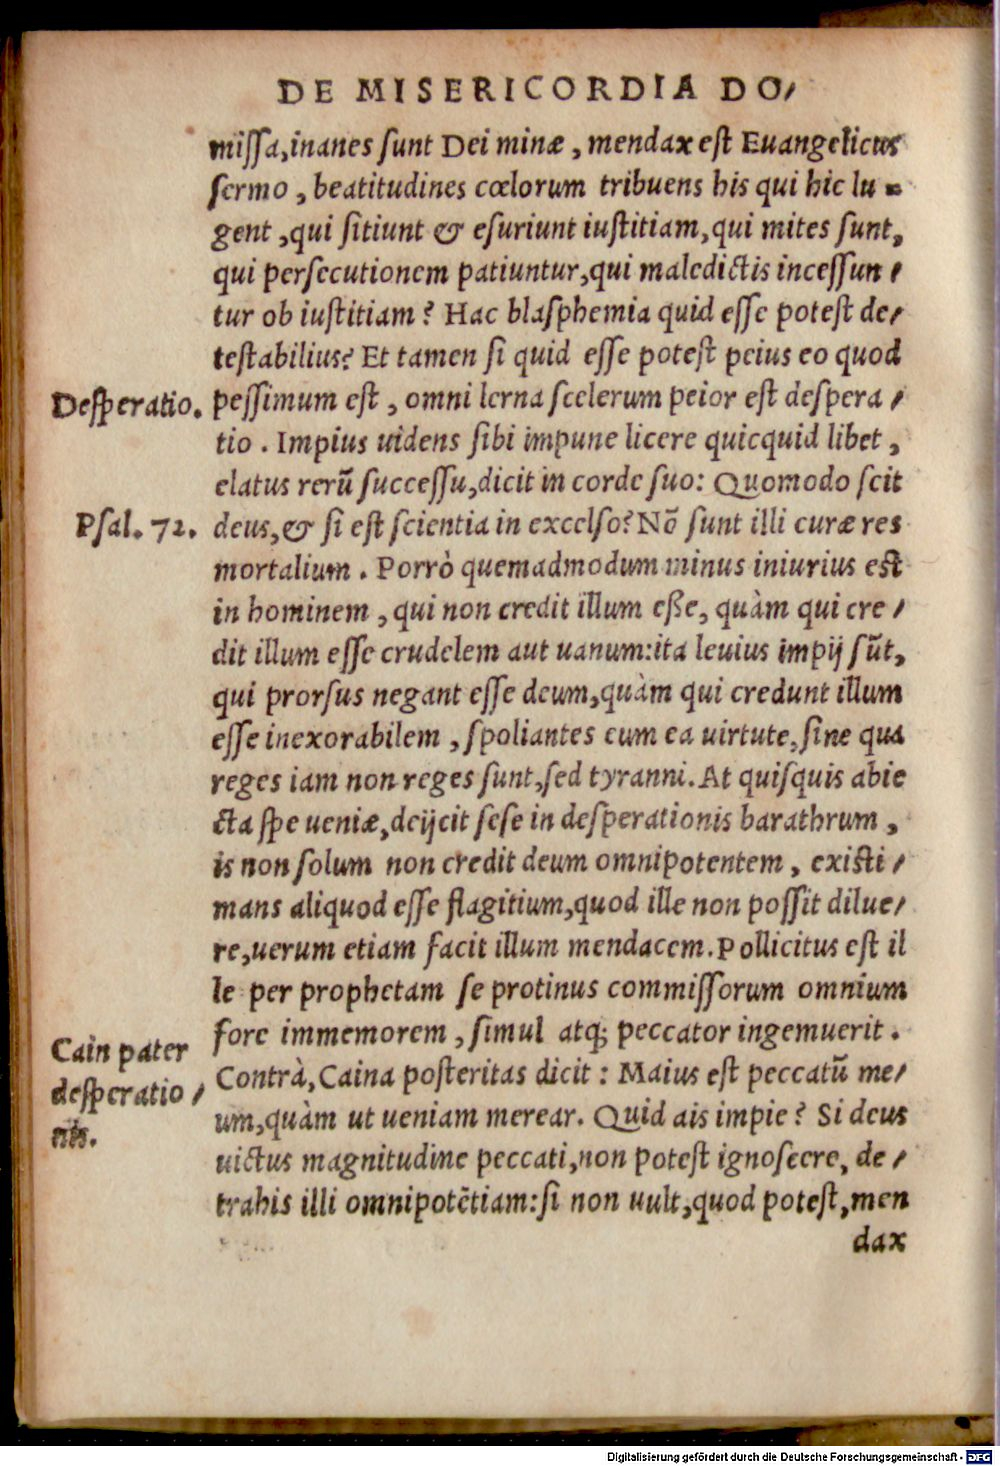 DE MISERICORDIA DO/
missa,inanes sunt Dei minæ, mendax est Euangelicus
sermo, beatitudines cœlorum tribuens his qui hic lu-
gent,qui sitiunt & esuriunt iustitiam,qui mites sunt,
qui persecutionem patiuntur,qui maledictis incessun/
tur ob iustitiam? Hac blasphemia quid esse potest de/
testabilius? Et tamen si quid esse potest peius eo quod
Desperatio.
pessimum est, omni lerna scelerum peior est despera/
tio. Impius uidens sibi impune licere quicquid libet,
elatus rerũ successu,dicit in corde suo: Quomodo scit
Psal. 72.
deus,& si est scientia in excelso? Nõ sunt illi curæ res
mortalium. Porrò quemadmodum minus iniurius est
in hominem, qui non credit illum eße, quàm qui cre/
dit illum esse crudelem aut uanum:ita leuius impij sũt,
qui prorsus negant esse deum,quàm qui credunt illum
esse inexorabilem, spoliantes eum ea uirtute,sine qua
reges iam non reges sunt,sed tyranni. At quisquis abie
cta spe ueniæ,deijcit sese in desperationis barathrum,
is non solum non credit deum omnipotentem, existi/
mans aliquod esse flagitium,quod ille non possit dilue/
re,uerum etiam facit illum mendacem. Pollicitus est il
le per prophetam se protinus commissorum omnium
fore immemorem, simul atq; peccator ingemuerit.
Cain pater
desperatio/
nis.
Contrà, Caina posteritas dicit: Maius est peccatũ me/
um,quàm ut ueniam merear. Quid ais impie? Si deus
uictus magnitudine peccati,non potest ignoscere, de/
trahis illi omnipotẽtiam:si non uult,quod potest,men
dax
Digitalisierung gefördert durch die Deutsche Forschungsgemeinschaft - DFG